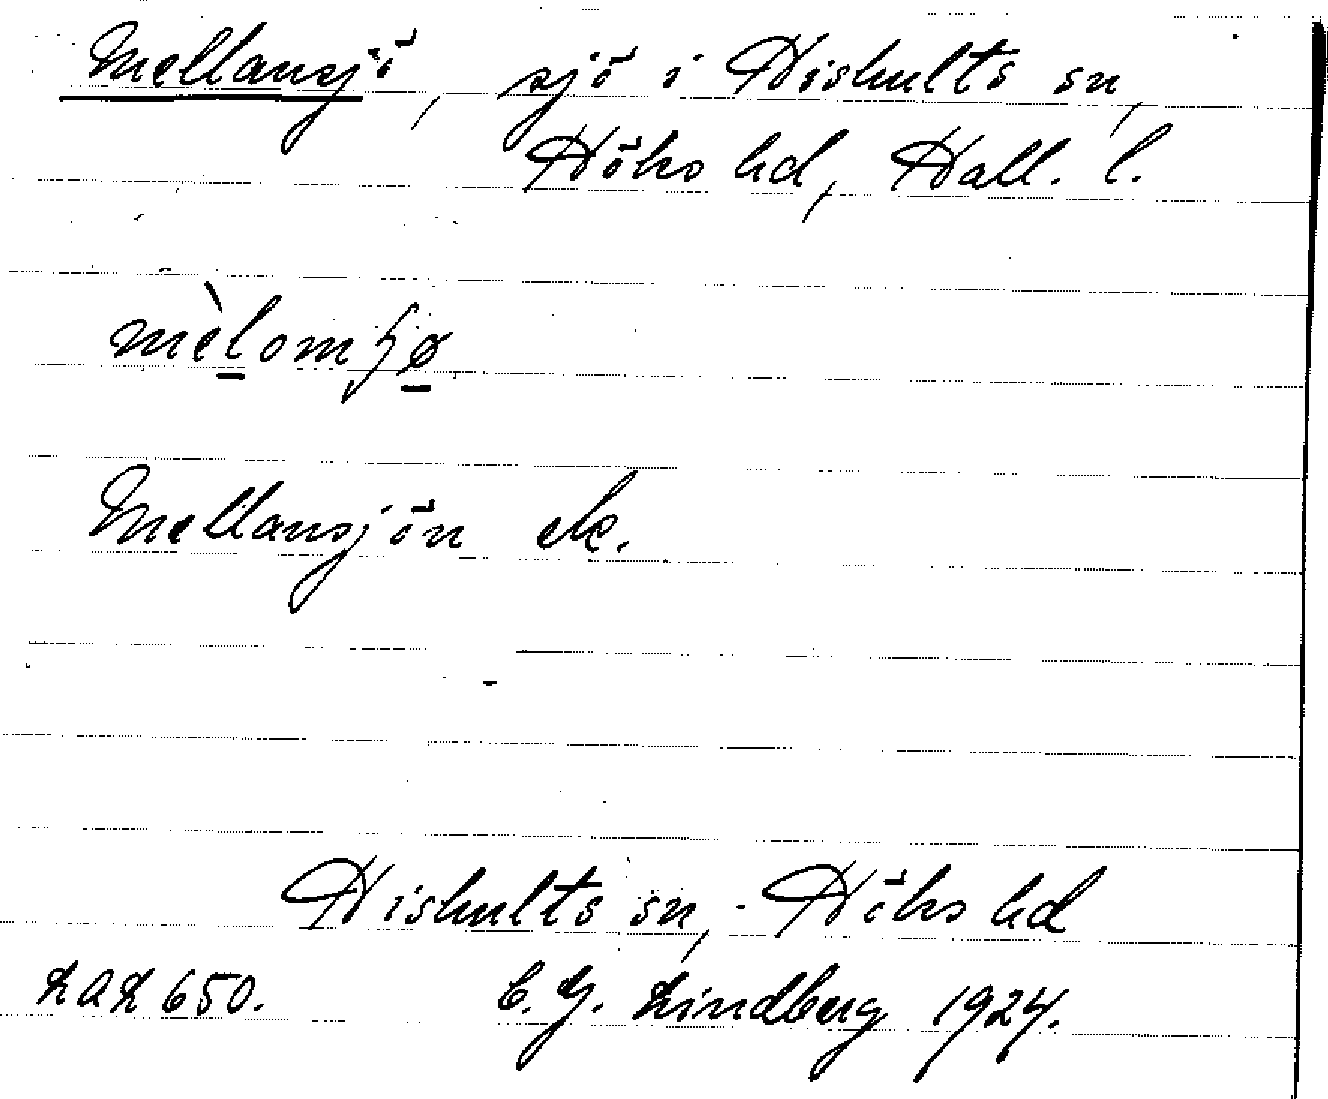 Mellansjö, sjö i Hishults sn,
Höks hd, Hall. l.
mèlomʃø
Mellansjön ek.
Hishults sn, Höks hd
LAL 650. C. G. Lindberg 1924.